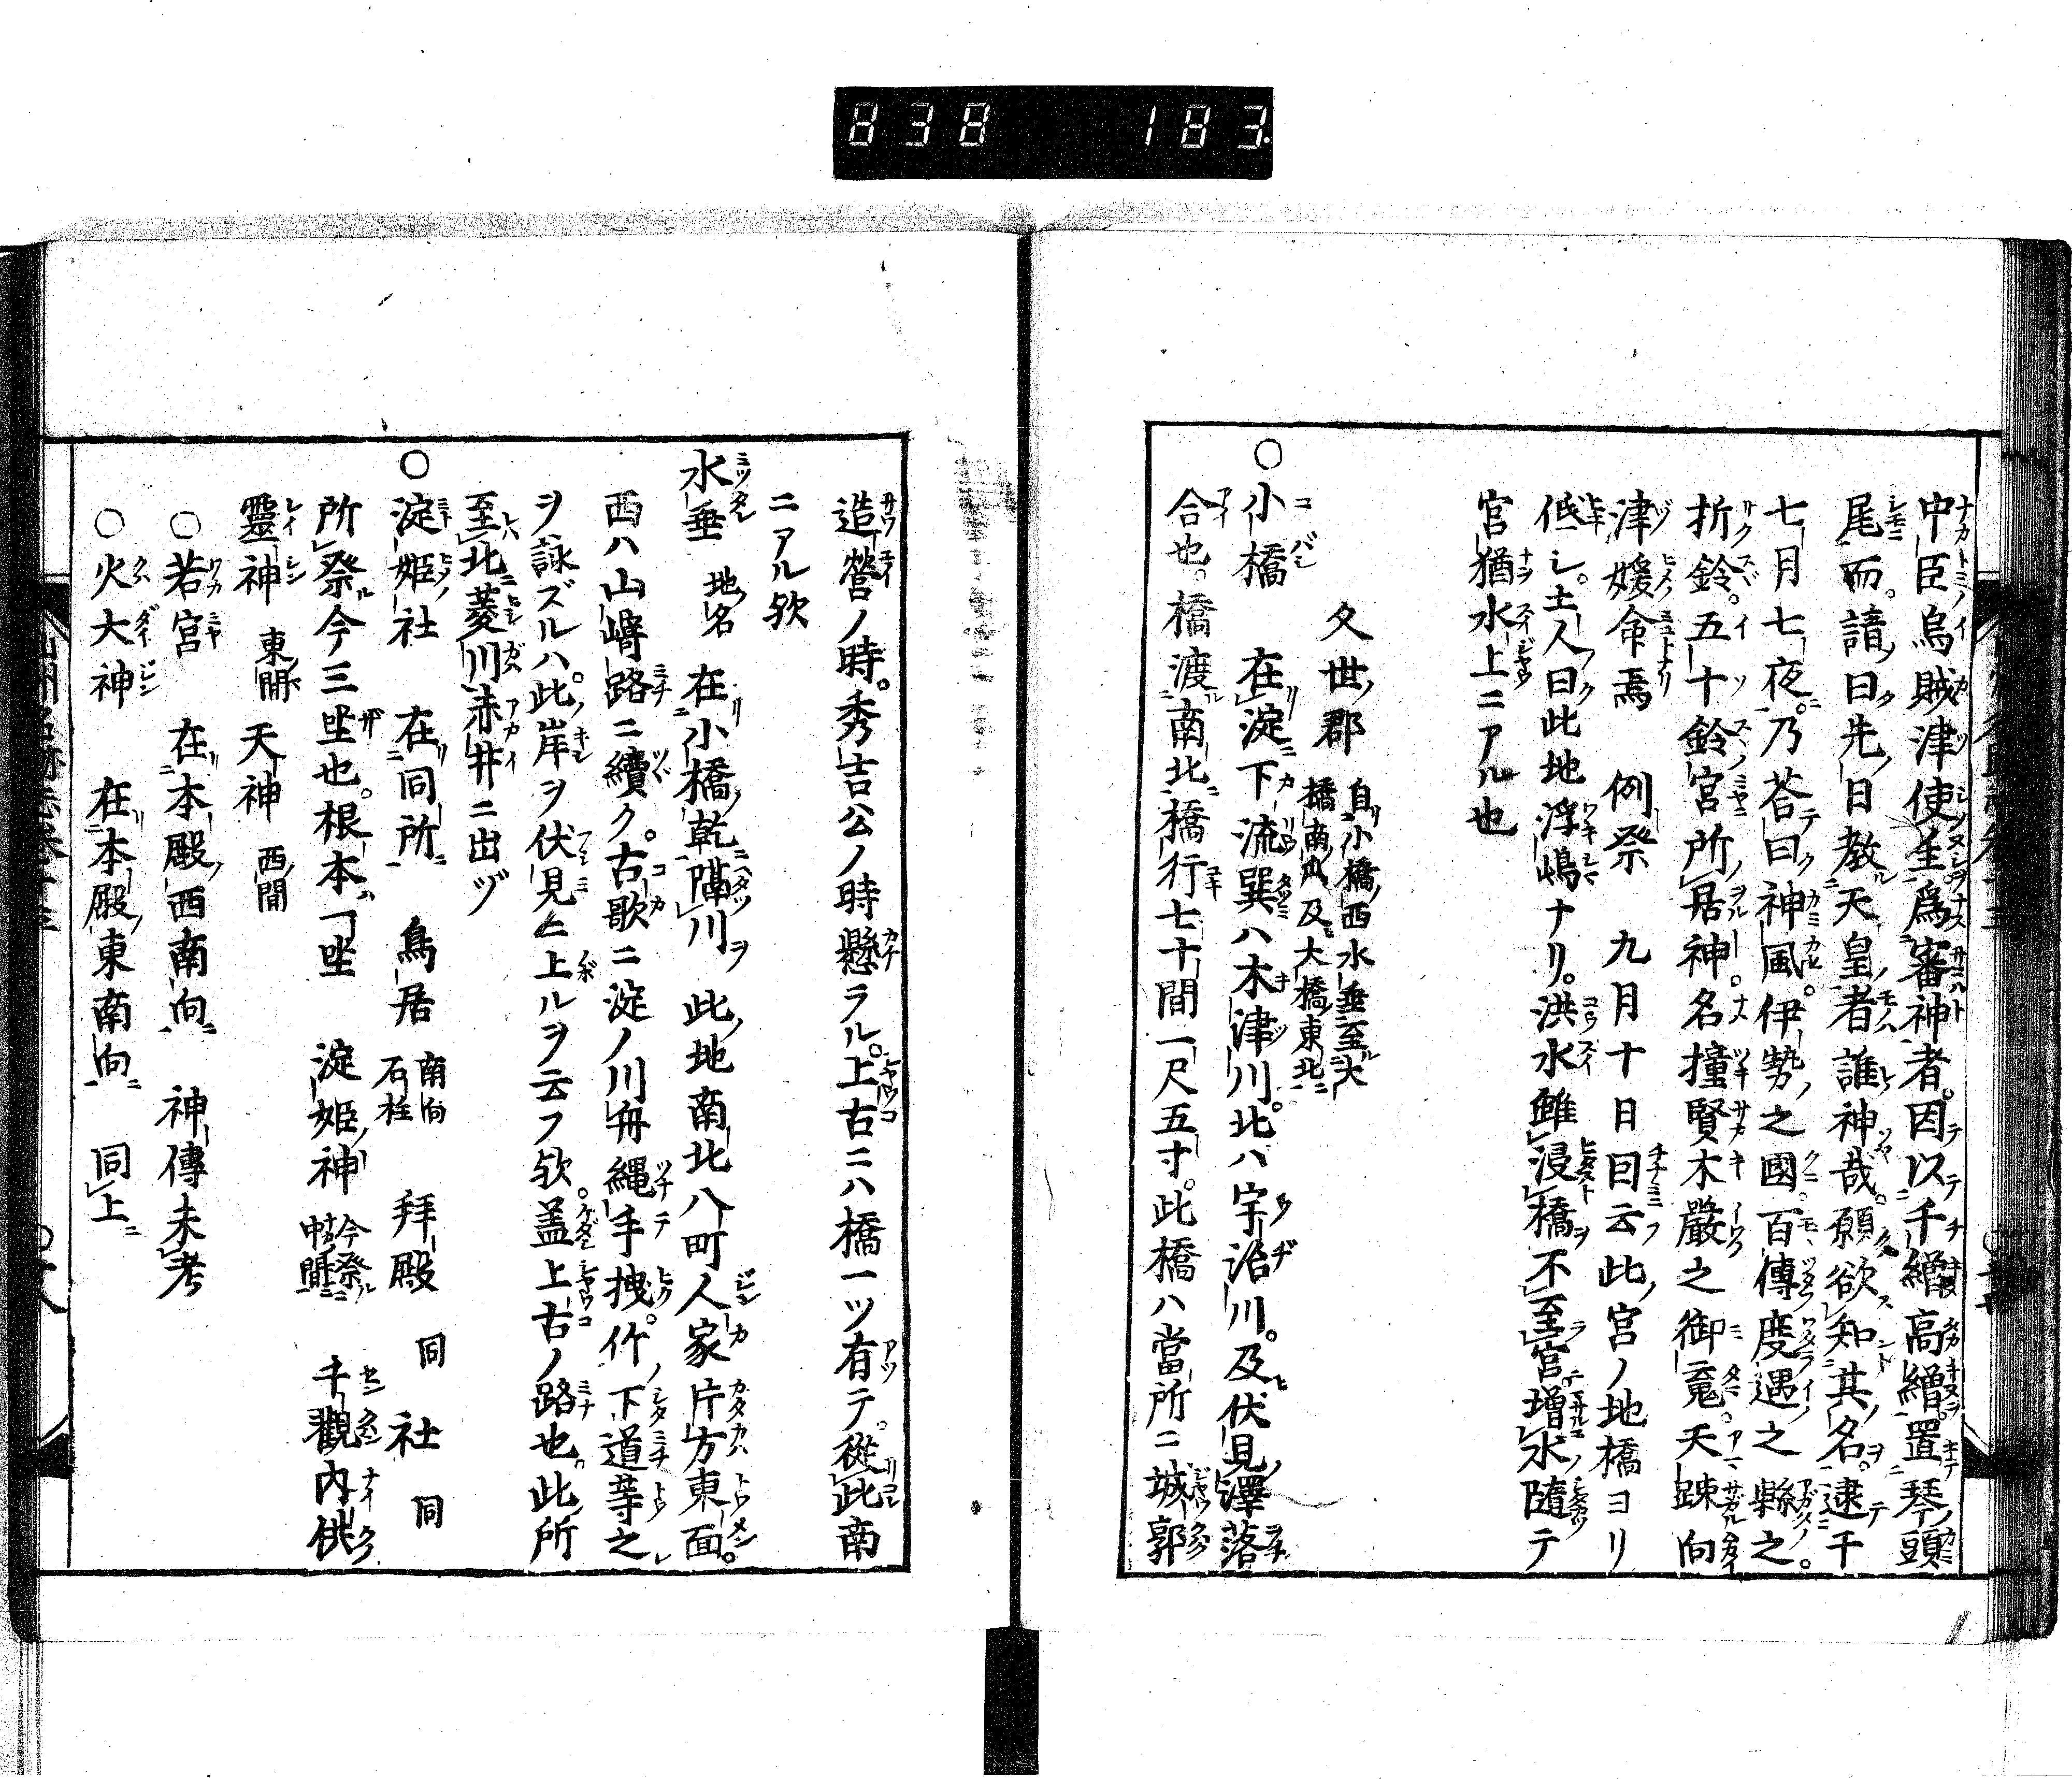 838 183
中臣烏賊津使主爲審神者。因以千繒高繒置琴頭
尾而。請曰先日教天皇者誰神哉。願欲知其名。逮千
七月七夜。乃荅曰神風。伊勢之國。百傳度遇之縣之。
折鈴。五十鈴宮所居神。名撞賢木嚴之御䰟。天踈向
津媛命焉　例祭　九月十日曰云此宮ノ地橋ヨリ
低シ。土人曰此地浮嶋ナリ。洪水雖浸橋不至宮。増水隨テ
宮猶水上ニアル也
久世郡 自小橋西水垂至大
橋南爪及大橋東北
○小橋　在淀下流巽ハ木津川。北ハ宇治川。及伏見澤落
合也。橋渡南北橋行七十間一尺五寸。此橋ハ當所ニ城郭
造營ノ時。秀吉公ノ時懸ラル。上古ニハ橋一ツ有テ。從此南
ニアル欤
水垂 地名　在小橋乾隔川ヲ　此地南北八町人家片方東面。
西ハ山﨑路ニ續ク。古歌ニ淀ノ川舟縄手拽。作ノ下道等之
ヲ詠ズルハ。此岸ヲ伏見ヒ上ルヲ云フ欤。盖上古ノ路也。此所
至北菱川赤井ニ出ヅ
○淀姫社　在同所　鳥居 南向
石柱　拜殿 同　社 同
所祭今三坐也。根本一坐　淀姫神 今祭
中間　千觀内供
靈神 東間　天神 西間
○若宮　在本殿西南向　神傳未考
○火大神　在本殿東南向　同上